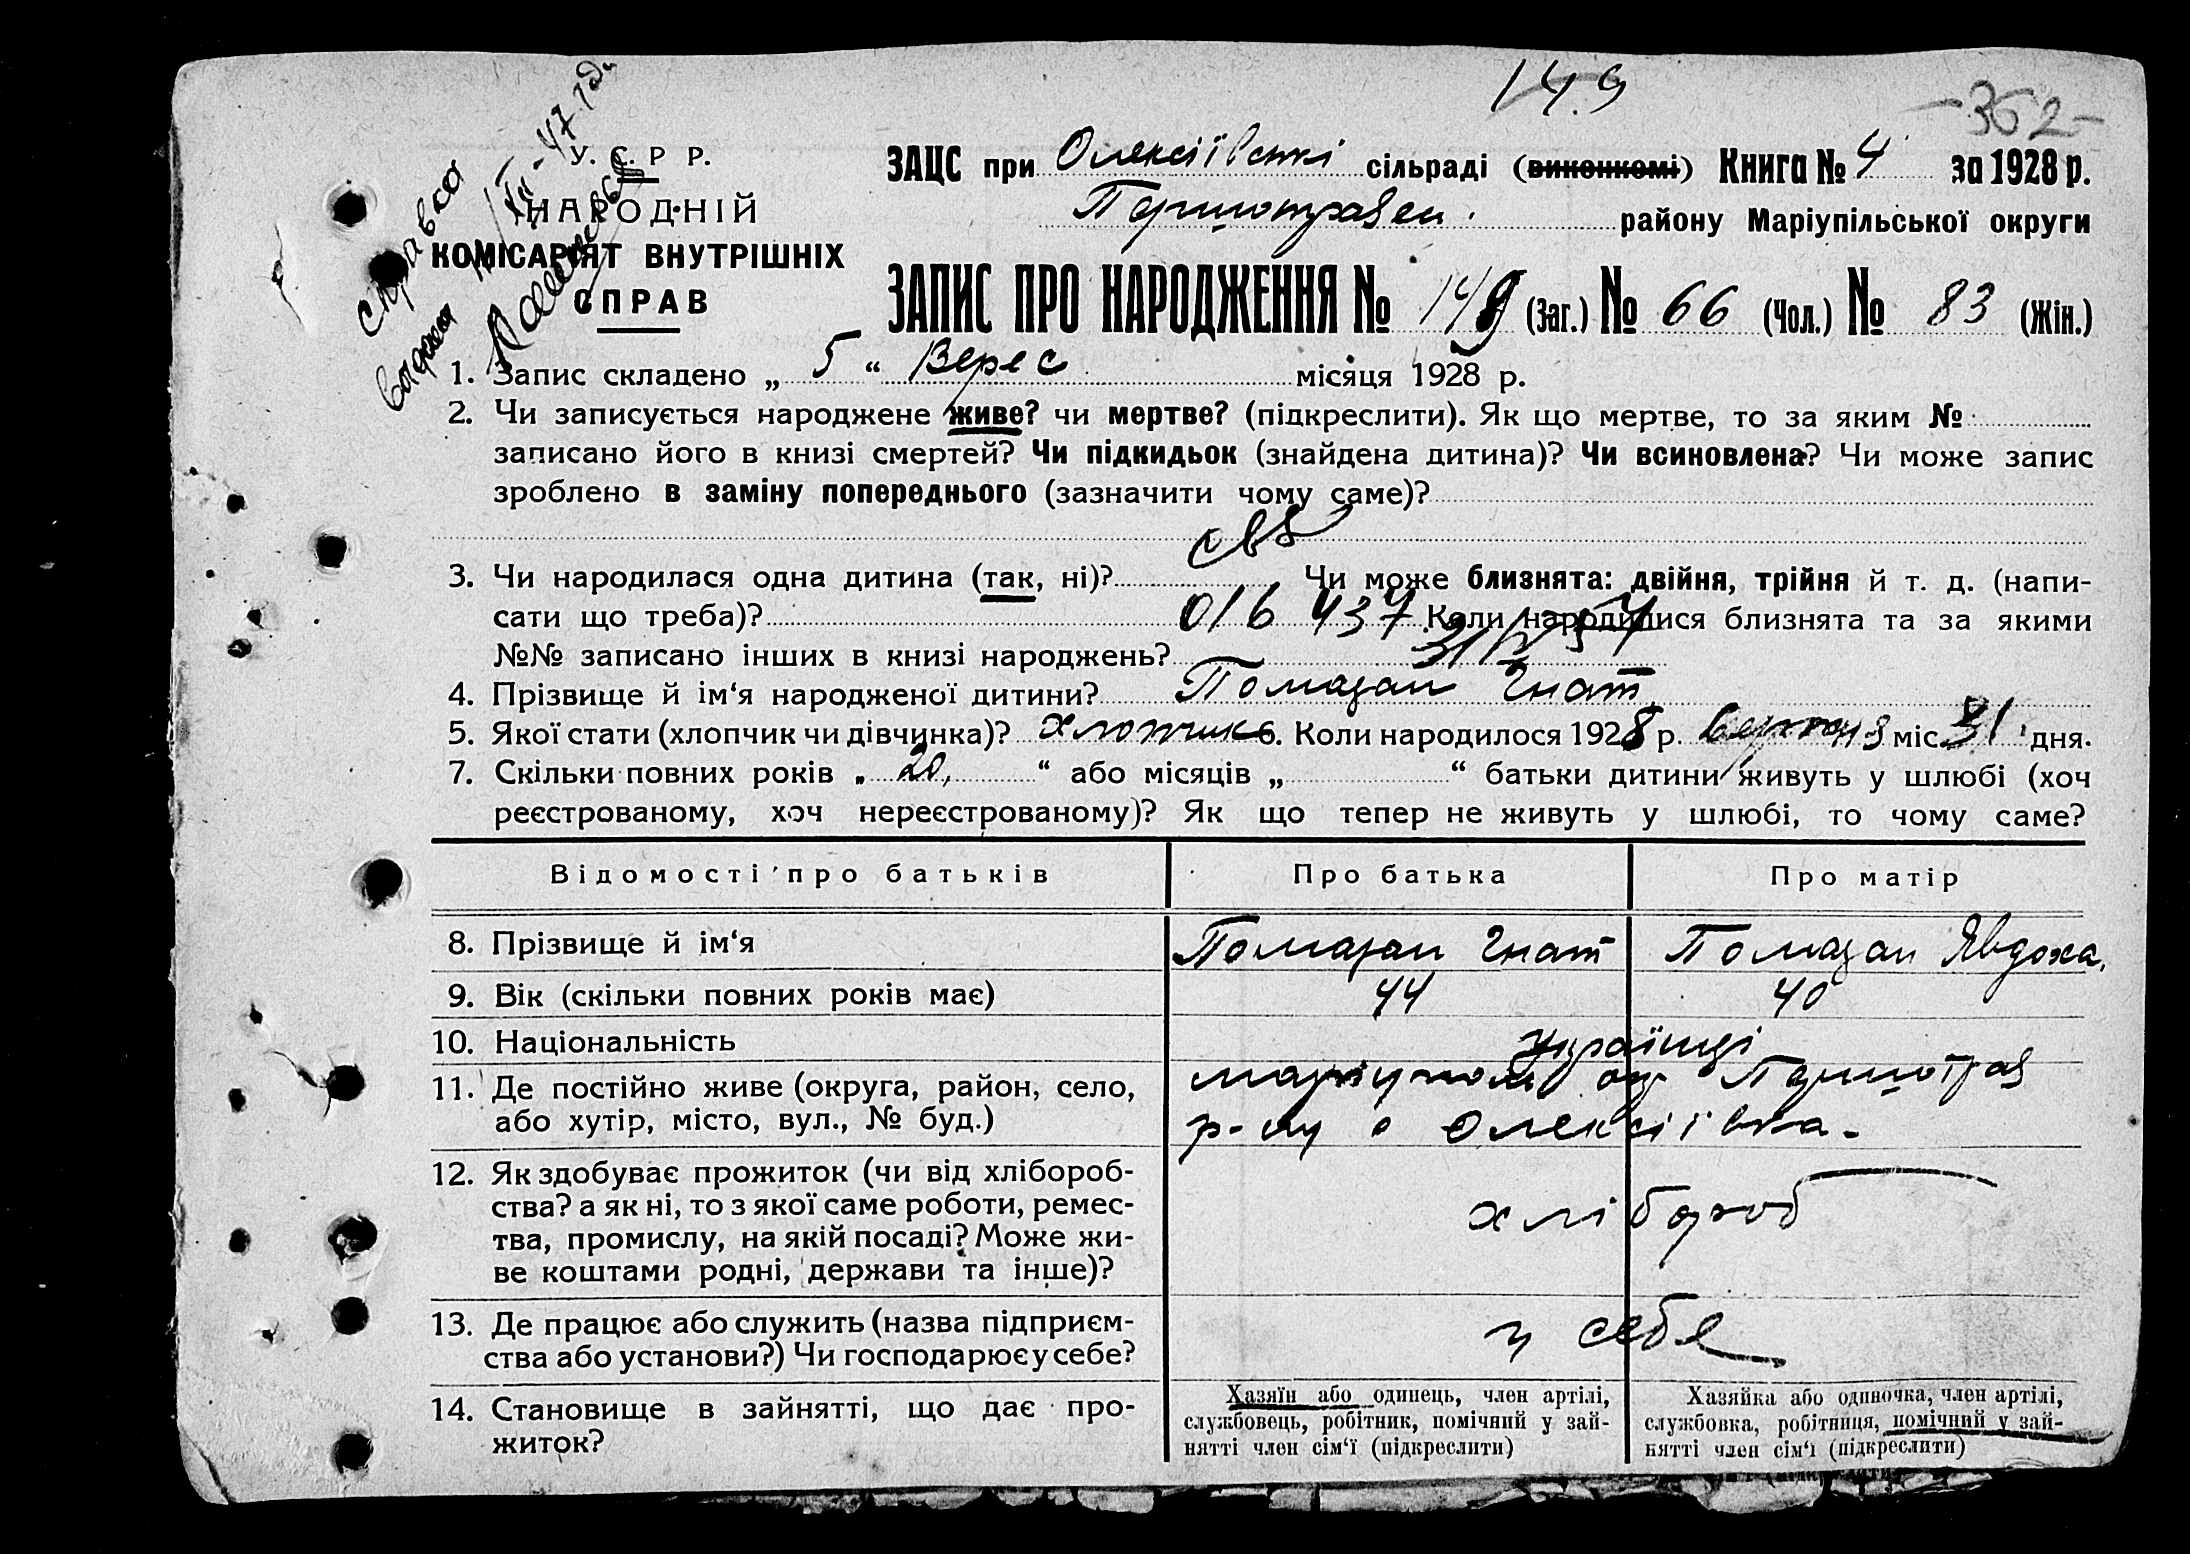 149
-362-
Справка
выдана 11/III-47 год
У. С. Р Р.
НАРОДНІЙ
КОМІСАРІЯТ ВНУТРІШНІХ
СПРАВ
ЗАЦС при Олексіївські сільраді (виконкомі) Книга № 4 за 1928 р.
Першотравен. району Маріупільської округи
ЗАПИС ПРО НАРОДЖЕННЯ № 149 (Заг.) № 66 (Чол.) № 83 (Жін.)
1. Запис складено „ 5 “ Верес місяця 1928 р.
2. Чи записується народжене живе? чи мертве? (підкреслити). Як що мертве, то за яким №
записано його в книзі смертей? Чи підкидьок (знайдена дитина)? Чи всиновлена? Чи може запис
зроблено в заміну попереднього (зазначити чому саме)?
свв
3. Чи народилася одна дитина (так, ні)? Чи може близнята: двійня, трійня й т. д. (напи-
сати що треба)? 016437 Коли народилися близнята та за якими
№№ записано інших в книзі народжень?
4. Прізвище й ім‘я народженої дитини? Помазан Гнат
5. Якої стати (хлопчик чи дівчинка)? хлопчик 6. Коли народилося 1928 р. серпня міс. 31 дня.
7. Скільки повних років „ 20, “ або місяців „ “ батьки дитини живуть у шлюбі (хоч
реєстрованому, хоч нереєстрованому)? Як що тепер не живуть у шлюбі, то чому саме?
Відомості про батьків Про батька Про матір
8. Прізвище й ім‘я Помазан Гнат Помазан Явдоха.
9. Вік (скільки повних років має) 44 40
10. Національність Українці
11. Де постійно живе (округа, район, село, маріупол ок. Першотрав
або хутір, місто, вул., № буд.) р-ну с Олексіївка.
12. Як здобуває прожиток (чи від хлібороб-
ства? а як ні, то з якої саме роботи, ремес- хлібороб
тва, промислу, на якій посаді? Може жи-
ве коштами родні, держави та інше)?
13. Де працює або служить (назва підприєм- у себе
ства або установи?) Чи господарює у себе?
14. Становище в зайнятті, що дає про-
житок?
Хазяїн або одинець, член артілі,
службовець, робітник, помічний у зай-
нятті член сім‘ї (підкреслити)
Хазяйка або одиночка, член артілі,
службовка, робітниця, помічний у зай-
нятті член сім‘ї (підкреслити)